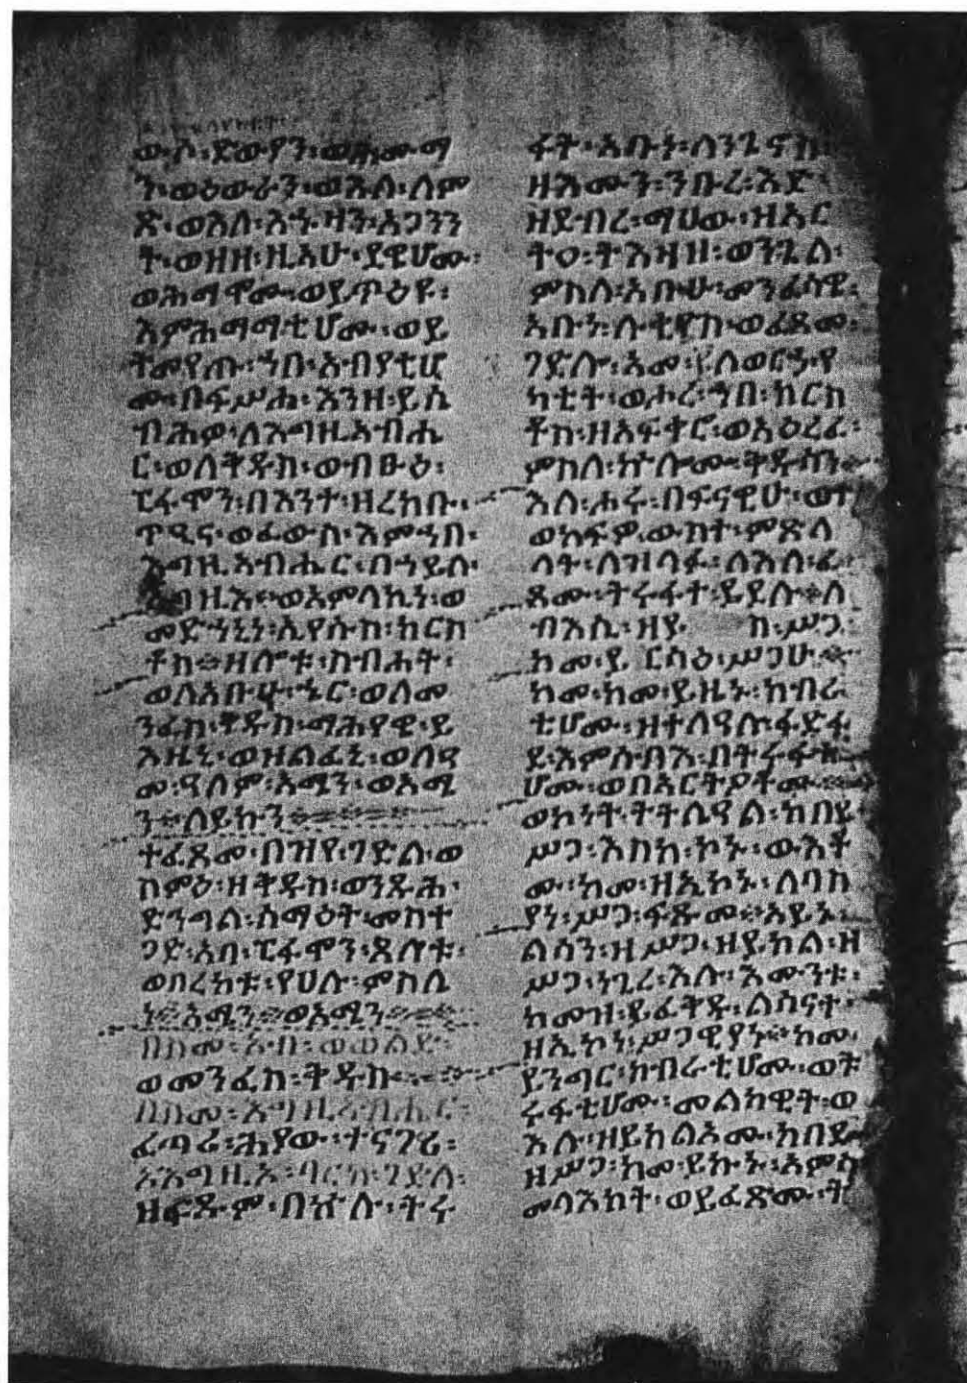 ውሶ፡ድውያን፡ወሕሙማ
ን፡ወዕውራን፡ወእለ፡ለም
ጽ፡ወእለ፡አኀዛን፡አጋንን
ት፡ወዘዘ፡ዚአሁ፡ደዌሆሙ፡
ወሕማሞሙ፡ወይጥዕዩ፡
እምሕማማቲሆሙ፡ወይ
ትመየጡ፡ኀበ፡አብያቲሆ
ሙ፡በፍሥሐ፡እንዘ፡ይሴ
ብሕዎ፡ለእግዚአብሔ
ር፡ወለቅዱስ፡ወብፁዕ፡
ፒፋሞን፡በእንተ፡ዘረከቡ፡
ጥዒና፡ወፈውስ፡እምኀበ፡
እግዚአብሔር፡በኃይለ፡
እግዚእ፡ወአምላኪነ፡ወ
መድኀኒነ፡ኢየሱስ፡ክርስ
ቶስ፡ዘሎቱ፡ስብሐት፡
ወለአቡሁ፡ኄር፡ወለመ
ንፈስ፡ቅዱስ፡ማሕየዊ፡ይ
እዜኒ፡ወዝልፈኒ፡ወለዓ
መ፡ዓለም፡አሜን፡ወአሜ
ን፡ለይኩን፡
ተፈጸመ፡በዝየ፡ገድል፡ወ
ስምዕ፡ዘቅዱስ፡ወንጹሕ፡
ድንግል፡ሰማዕት፡መስተ
ጋድ፡አባ፡ፒፋሞን፡ጸሎቱ፡
ወበረከቱ፡የሀሉ፡ምስሌ
ነ፡አሜን፡ወአሜን፡
በስመ፡አብ፡ወወልድ፡
ወመንፈስ፡ቅዱስ፡
በስመ፡እግዚአብሔር፡
ፈጣሪ፡ሕያው፡ተናጋሪ፡
ኦእግዚኦ፡ባርክ፡ገድለ፡
ዘፍጹም፡በኵሉ፡ትሩ
ፋት፡አቡነ፡ለንጊኖስ፡
ዘሕሙን፡ንቡረ፡እድ፡
ዘደብረ፡ማህው፡ዘአር
ትዐ፡ትእዛዘ፡ወንጌል፡
ምስለ፡አቡሁ፡መንፈሳዊ፡
አቡነ፡ሉቲያስ፡ወፈጸመ፡
ገድሎ፡አመ፡፪ለወርኃ፡የ
ካቲት፡ወሖረ፡ኀበ፡ክርስ
ቶስ፡ዘአፍቀሮ፡ወአዕረፈ፡
ምስለ፡ኵሎሙ፡ቅዱሳን፡
እለ፡ሖሩ፡በፍናዊሁ፡ወተ
ወክፍዎ፡ውስተ፡ምጽላ
ላት፡ለዝላፉ፡ለእለ፡ፈ
ጸሙ፡ትሩፋተ፡ይደሉ፡ለ
ብእሲ፡ዘየ ስ፡ሥጋ፡
ከመ፡ይ ርሳዕ፡ሥጋሁ፡
ከመ፡ከመ፡ይዜኑ፡ክብራ
ቲሆሙ፡ዘተለዓሉ፡ፋድፋ
ደ፡እምሰብእ፡በትሩፋቲ
ሆሙ፡ወበአርትዖቶሙ፡
ወኮነት፡ትትሌዓል፡ከበደ፡
ሥጋ፡እስከ፡ኮኑ፡ውእቶ
ሙ፡ከመ፡ዘኢኮኑ፡ለባስ
ያነ፡ሥጋ፡ፍጹመ፡አይኑ፡
ልሳን፡ዘሥጋ፡ዘይክል፡ዘ
ሥጋ፡ነጊረ፡እሉ፡እሙንቱ፡
ከመዝ፡ይፈቅዱ፡ልሳናት፡
ዘኢኮነ፡ሥጋዊያነ፡ከመ፡
ይንግር፡ክብራቲሆሙ፡ወት
ሩፋቲሆሙ፡መልክዊት፡ወ
እሉ፡ዘይክልአሙ፡ክበደ፡
ዘሥጋ፡ከመ፡ይኩኑ፡አምሳ
መላእክት፡ወይፈጽሙ፡ት